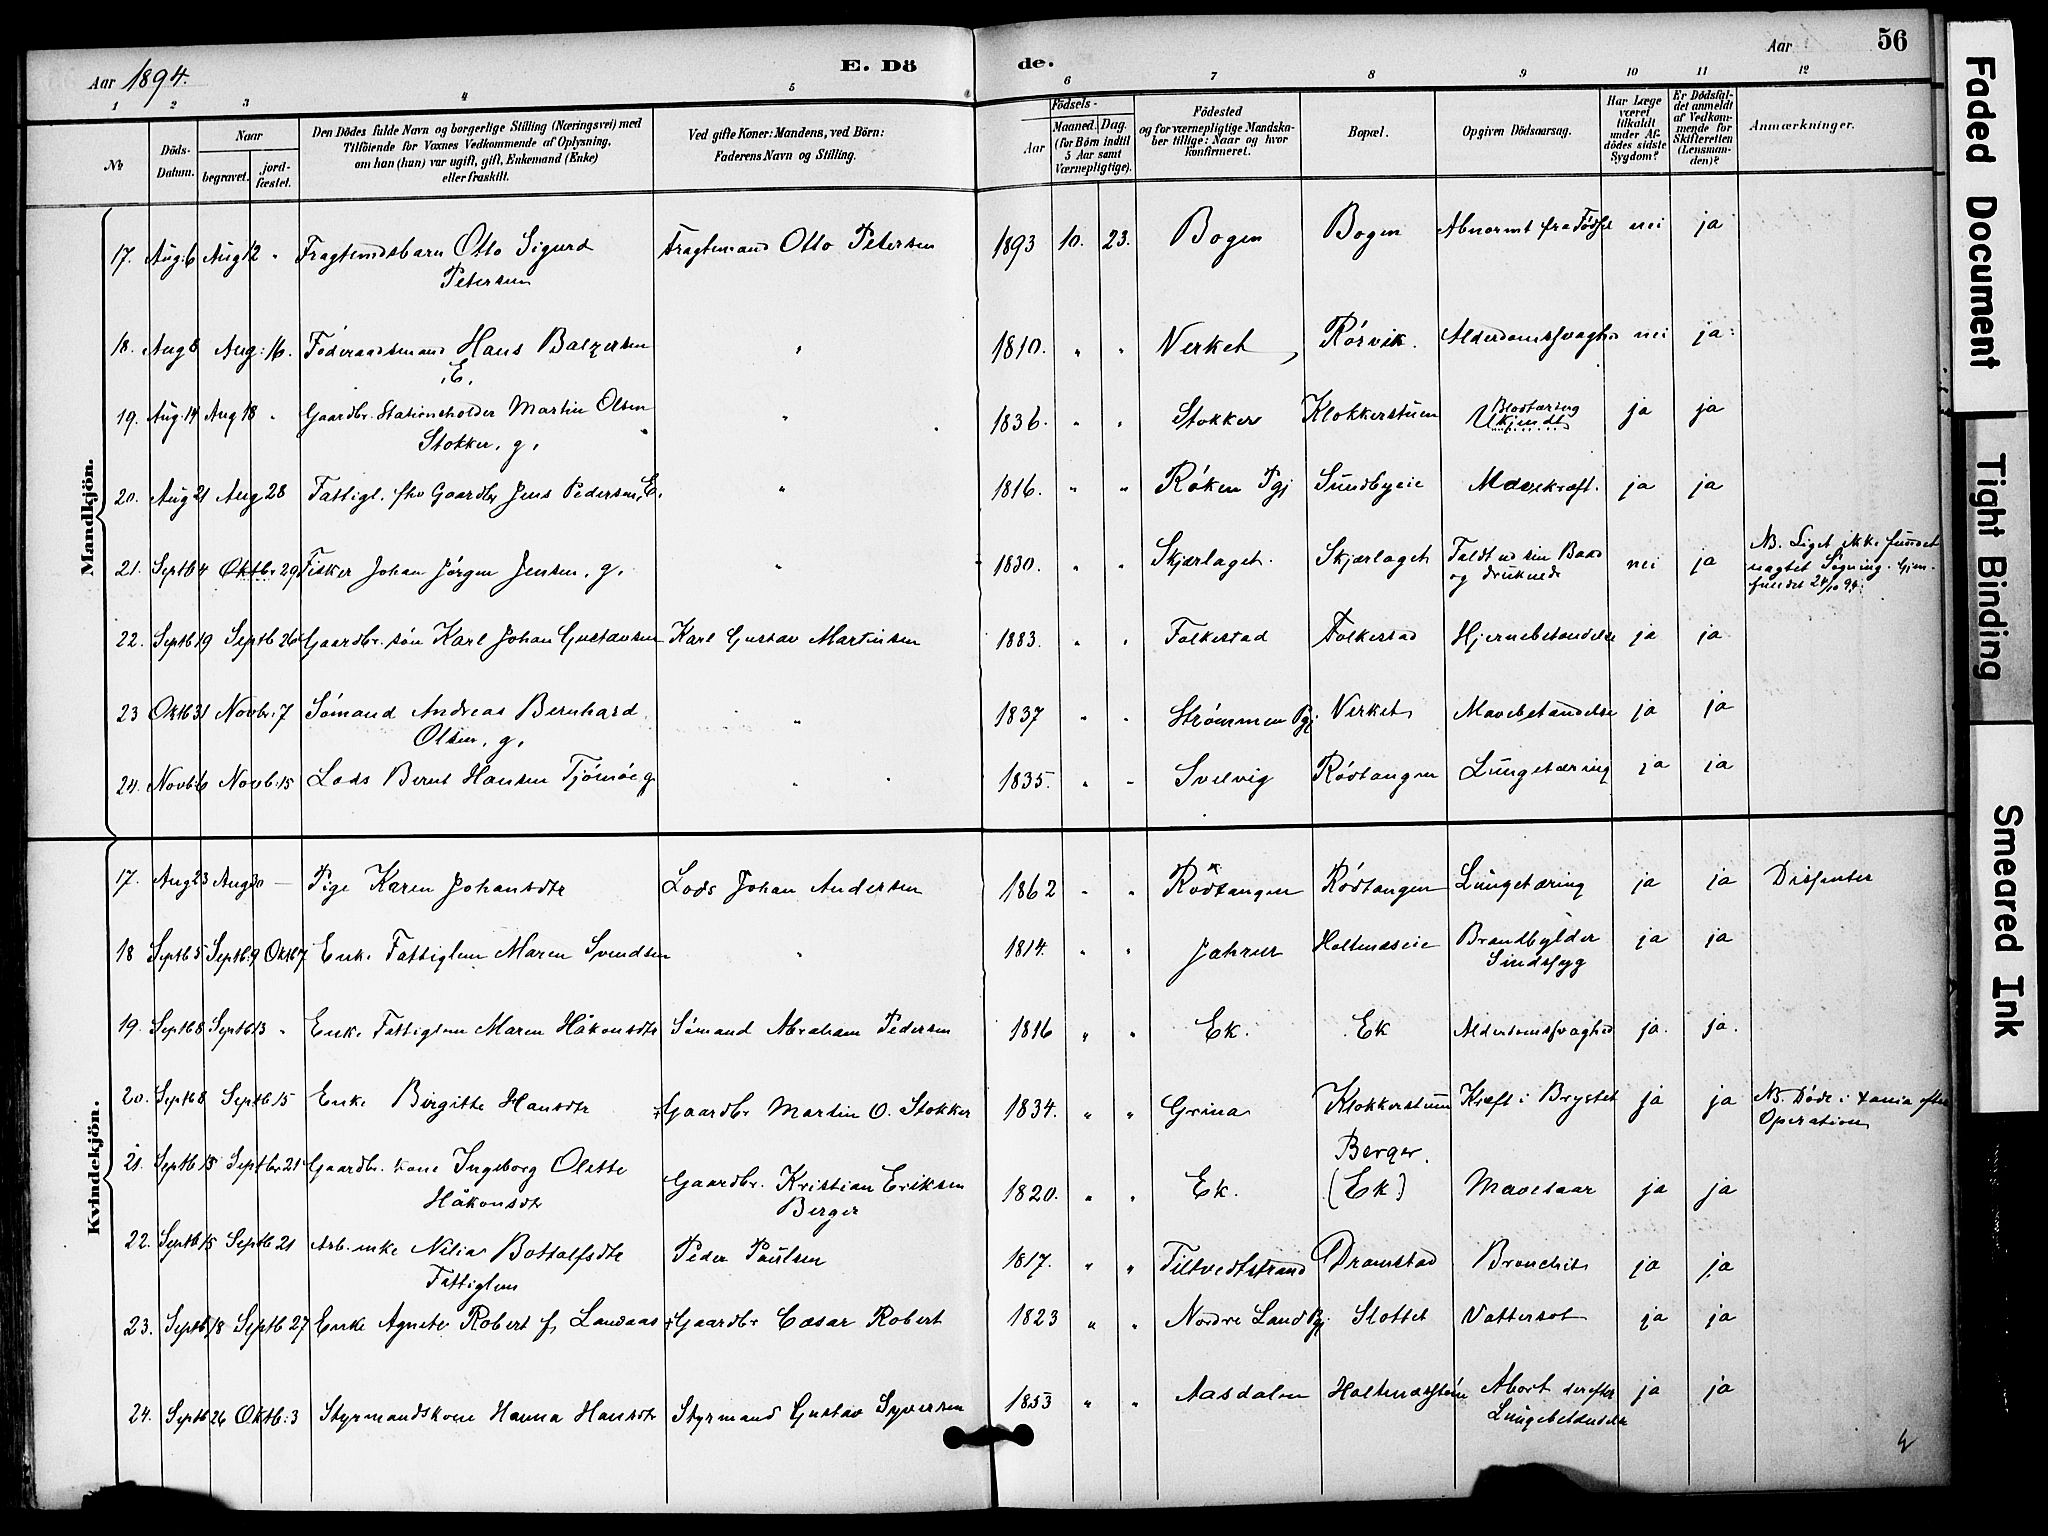 Aar 1894. E. Dö de. Aar 56
1 2 3 4 5 6 7 8 9 10 11 12
No
Döds-Datum.
Naar
begravet.
jord-fæstet.
Den Dödes fulde Navn og borgerlige Stilling (Næringsvei) med
Tilföiende for Voxnes Vedkommende af Oplysning,
om han (hun) var ugift, gift, Enkemand (Enke)
eller fraskilt.
Ved gifte Koner: Mandens, ved Börn:
Faderens Navn og Stilling.
Födsels-
Aar
Maaned. Dag.
(for Børn indtil
5 Aar samt
Værnepligtige).
Födested
og for værnepligtige Mandska-
ber tillige: Naar og hvor
konfirmeret.
Bopæl.
Opgiven Dödsaarsag.
Har Læge
været
tilkaldt
under Af-
dödes sidste
Sygdom?
Er Dødsfal-
det anmeldt
af Vedkom-
mende for
Skifteretten
(Lensman-
den)?
Anmærkninger.
Mandkjön.
17. Aug: 6 Aug 12 " Fragtmdsbarn Otto Sigurd Fragtemand Otto Petersen 1893 10. 23. Bogen Bogen Abnormt fra Födsel nei ja
Petersen
18. Aug 8 Aug: 16. Føderaadsmand Hans Balzersen " 1810. " " Verket Rörvik. Alderdomssvaghed nei ja:
E.
19. Aug. 14 Aug 18 " Gaardbr. Stationsholder Martin Olsen " 1836. " " Stokker Klokkerstuen Blodtæring ja ja
Stokker, g. Ukjendt
20. Aug 21 Aug 28 Fattigl. fhv Gaardbr Jens Pedersen, E. " 1816. " " Röken Pgj Sundbyeie Mavekræft. ja ja
21. Septb 4 Oktbr 29 Fisker Johan Jörgen Jensen, g. " 1830. " " Skjærlaget. Skjærlaget Faldt ud sin Baad nei ja NB. Liget ikke fundet
og druknede uagtet Søgning. Gjen-
fundet 24/10 94.
22. Septb 19 Septb 26 Gaardbr. sön Karl Johan Gustavsen Karl Gustav Martinsen 1883. " " Folkestad Folkestad Hjernebetændelse ja ja
23 Oktb 31 Novbr. 7 Sømand Andreas Bernhard " 1837 " " Strömmen Pgj Verket Mavebetændelse ja ja
Olsen, g.
24. Novb: 6 Novb: 15 Lods Bernt Hansen Tjömöe g " 1835. " " Svelvig Rödtangen Lungetæring ja ja
Kvindekjön.
17. Aug 23 Aug 30 — Pige Karen Johansdtr Lods Johan Andersen 1862 " " Rödtangen Rödtangen Lungetæring ja ja Dissenter
18 Septb 5 Septb. 9 Oktb 7 Enke Fattiglem Maren Svendsen " 1814. " " Jahren Holtnæseie Brandbylder ja ja
Sindssyg
19. Septb 8 Septb 13 " Enke Fattiglem Maren Håkonsdtr Sömand Abraham Pedersen 1816 " " Ek. Ek Alderdomssvaghed ja. ja.
20. Septb 8 Septb 15 Enke Birgitte Hansdtr Gaardbr Martin O. Stokker 1834. " " Grina Klokkerstuen Kræft i Brystet ja ja NB. Døde i efter
Operation
21. Septb 15 Septbr 21 Gaardbr. kone Ingeborg Olette Gaardbr. Kristian Eriksen 1820. " " Ek. Berger. (Ek) Mavesaar ja ja
Håkonsdtr Berger
22. Septb 15 Septb 21 Arb. enke Nilia Bottolfsdtr Peder Paulsen 1817. " " Tiltvedtstrand Dramstad Bronchit ja ja
Fattiglem
23. Septb 18 Septb 27 Enke Agnete Robert f. Landaas Gaardbr Cæsar Robert 1823 " " Nordre Land Pgj Slottet Vattersot ja ja
24. Septb 26 Oktb: 3 Styrmandskone Hanna Hansdtr Styrmand Gustav Syversen 1853 " " Aasdalen Holtnæs Abort derefter ja ja
Lungebetændelse
Faded Document
Tight Binding
Smeared Ink